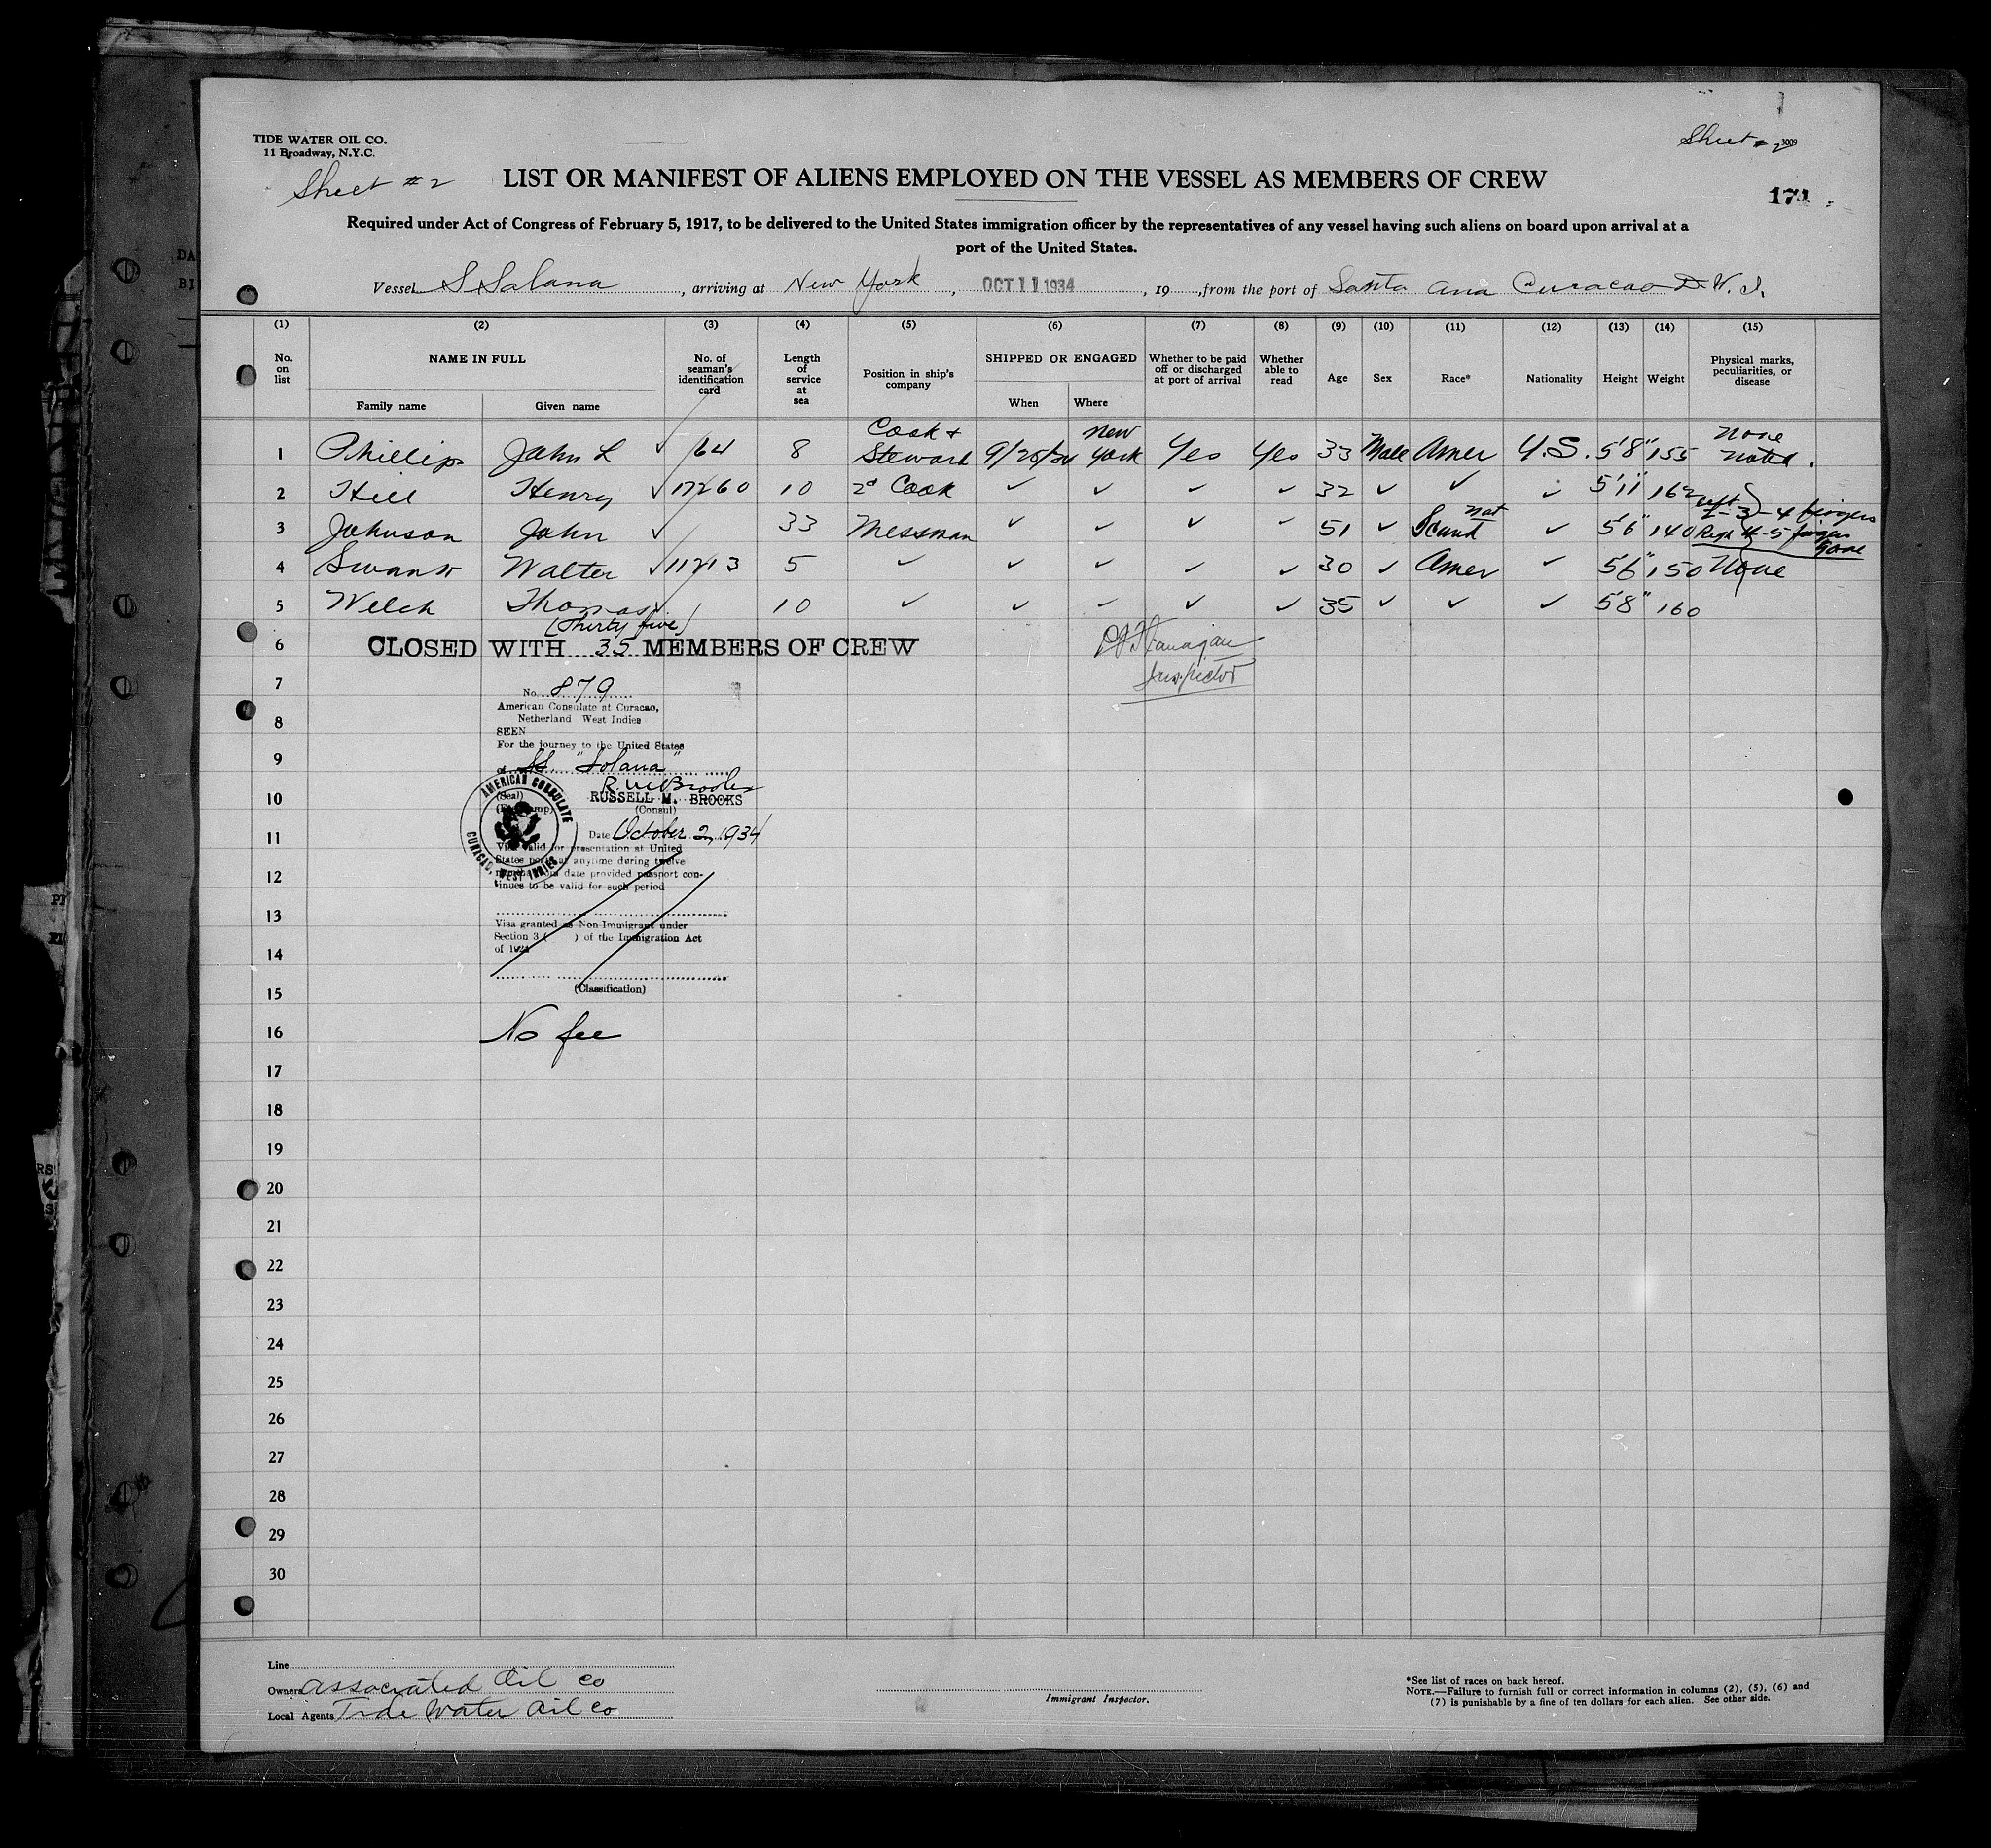 TIDE WATER OIL CO.
11 Broadway, N.Y.C.
Sheet #2
Sheet #2 3009
LIST OR MANIFEST OF ALIENS EMPLOYED ON THE VESSEL AS MEMBERS OF CREW
Required under Act of Congress of February 5, 1917, to be delivered to the United States immigration officer by the representatives of any vessel having such aliens on board upon arrival at a
port of the United States.
Vessel S Solana, arriving at New York, OCT 11 1934, 19 , from the port of Santa Ana Curacao D.W.I.
(1) (2) (3) (4) (5) (6) (7) (8) (9) (10) (11) (12) (13) (14) (15)
No. on list
NAME IN FULL
Family name Given name
No. of seaman's identification card
Length of service at sea
Position in ship's company
SHIPPED OR ENGAGED
When Where
Whether to be paid off or discharged at port of arrival
Whether able to read
Age Sex Race* Nationality Height Weight
Physical marks, peculiarities, or disease
1 Phillips John L ✓ 164 8 Cook + Steward 9/25/34 New York Yes Yes 33 Male Amer U.S. 5'8" 155 None noted.
2 Hill Henry ✓ 17260 10 2d Cook ✓ ✓ ✓ ✓ 32 ✓ ✓ ✓ 5'11" 162
3 Johnson John ✓ 33 Messman ✓ ✓ ✓ ✓ 51 ✓ Scand nat ✓ 5'6" 140 left 2-3-4 fingers Righ 4-5 fingers gone
4 Swan Walter ✓ 11213 5 ✓ ✓ ✓ ✓ ✓ 30 ✓ Amer ✓ 5'6" 150 None
5 Welch Thomas ✓ 10 ✓ ✓ ✓ ✓ ✓ 35 ✓ ✓ ✓ 5'8" 160
(Thirty five)
6 CLOSED WITH 35 MEMBERS OF CREW
Flanagan
Inspector
7
No. 879
American Consulate at Curacao,
Netherland West Indies
8
SEEN
For the journey to the United States
9
of SS "Solana"
R. M. Brooks
10
(Seal) RUSSELL M. BROOKS
(Consul)
AMERICAN CONSULATE
CURACAO, WEST INDIES
11
Date October 2, 1934
Visa valid for presentation at United
States ports at anytime during twelve
12
months from date provided passport con-
tinues to be valid for such period
13
Visa granted as Non-Immigrant under
Section 3 ( ) of the Immigration Act
of 1924
14
(Classification)
15
16 No fee
17
18
19
20
21
22
23
24
25
26
27
28
29
30
Line
Owners Associated Oil Co
Local Agents Tide Water Oil Co
Immigrant Inspector.
*See list of races on back hereof.
NOTE.—Failure to furnish full or correct information in columns (2), (5), (6) and
(7) is punishable by a fine of ten dollars for each alien. See other side.